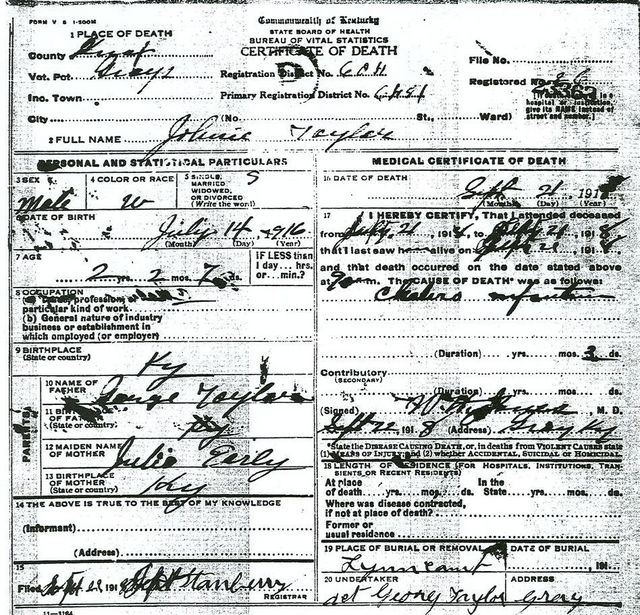 FORM V S 1-500M
Commonwealth of Kentucky
STATE BOARD OF HEALTH
BUREAU OF VITAL STATISTICS
CERTIFICATE OF DEATH
1 PLACE OF DEATH
County
Vot. Pct. Grays
Inc. Town
City (No. St., Ward)
Registration District No.
Primary Registration District No.
File No.
Registered No.
hospital or institution,
give its NAME instead of
street and number.]
2 FULL NAME Johnie Taylor
PERSONAL AND STATISTICAL PARTICULARS
3 SEX Male
4 COLOR OR RACE W
5 SINGLE, MARRIED WIDOWED, OR DIVORCED (Write the word) S
6 DATE OF BIRTH
July 14 1916
(Month) (Day) (Year)
7 AGE
2 yrs. 2 mos. 7 ds.
IF LESS than
1 day... hrs.
or... min.?
8 OCCUPATION
(a) Trade, profession, or
particular kind of work
(b) General nature of industry
business or establishment in
which employed (or employer)
9 BIRTHPLACE
(State or country) Ky
PARENTS
10 NAME OF
FATHER George Taylor
11 BIRTHPLACE
OF FATHER Ky
(State or country)
12 MAIDEN NAME
OF MOTHER Julie Early
13 BIRTHPLACE
OF MOTHER Ky
(State or country)
14 THE ABOVE IS TRUE TO THE BEST OF MY KNOWLEDGE
(Informant)
(Address)
15
Filed Stanberry
REGISTRAR
11-3184
MEDICAL CERTIFICATE OF DEATH
16 DATE OF DEATH
Sept 21, 1918
(Month) (Day) (Year)
17 I HEREBY CERTIFY, That I attended deceased
from Sept 21, 1918, to Sept 21 1918,
that I last saw h alive on Sept 21 1918,
and that death occurred on the date stated above
at m. The CAUSE OF DEATH* was as follows:
Cholera
(Duration) yrs. mos. 3 ds.
Contributory
(SECONDARY)
(Duration) yrs. mos. ds.
(Signed) M. D.
Sept 22, 1918 (Address) Gray Ky
*State the DISEASE CAUSING DEATH, or, in deaths from VIOLENT CAUSES state
(1) MEANS OF INJURY and (2) whether ACCIDENTAL, SUICIDAL or HOMICIDAL.
18 LENGTH OF RESIDENCE (FOR HOSPITALS, INSTITUTIONS, TRAN-
SIENTS OR RECENT RESIDENTS)
At place In the
of death yrs. mos. ds. State yrs. mos. ds.
Where was disease contracted,
if not at place of death?
Former or
usual residence
19 PLACE OF BURIAL OR REMOVAL DATE OF BURIAL
Lynn Camp 191
20 UNDERTAKER ADDRESS
George Taylor Gray